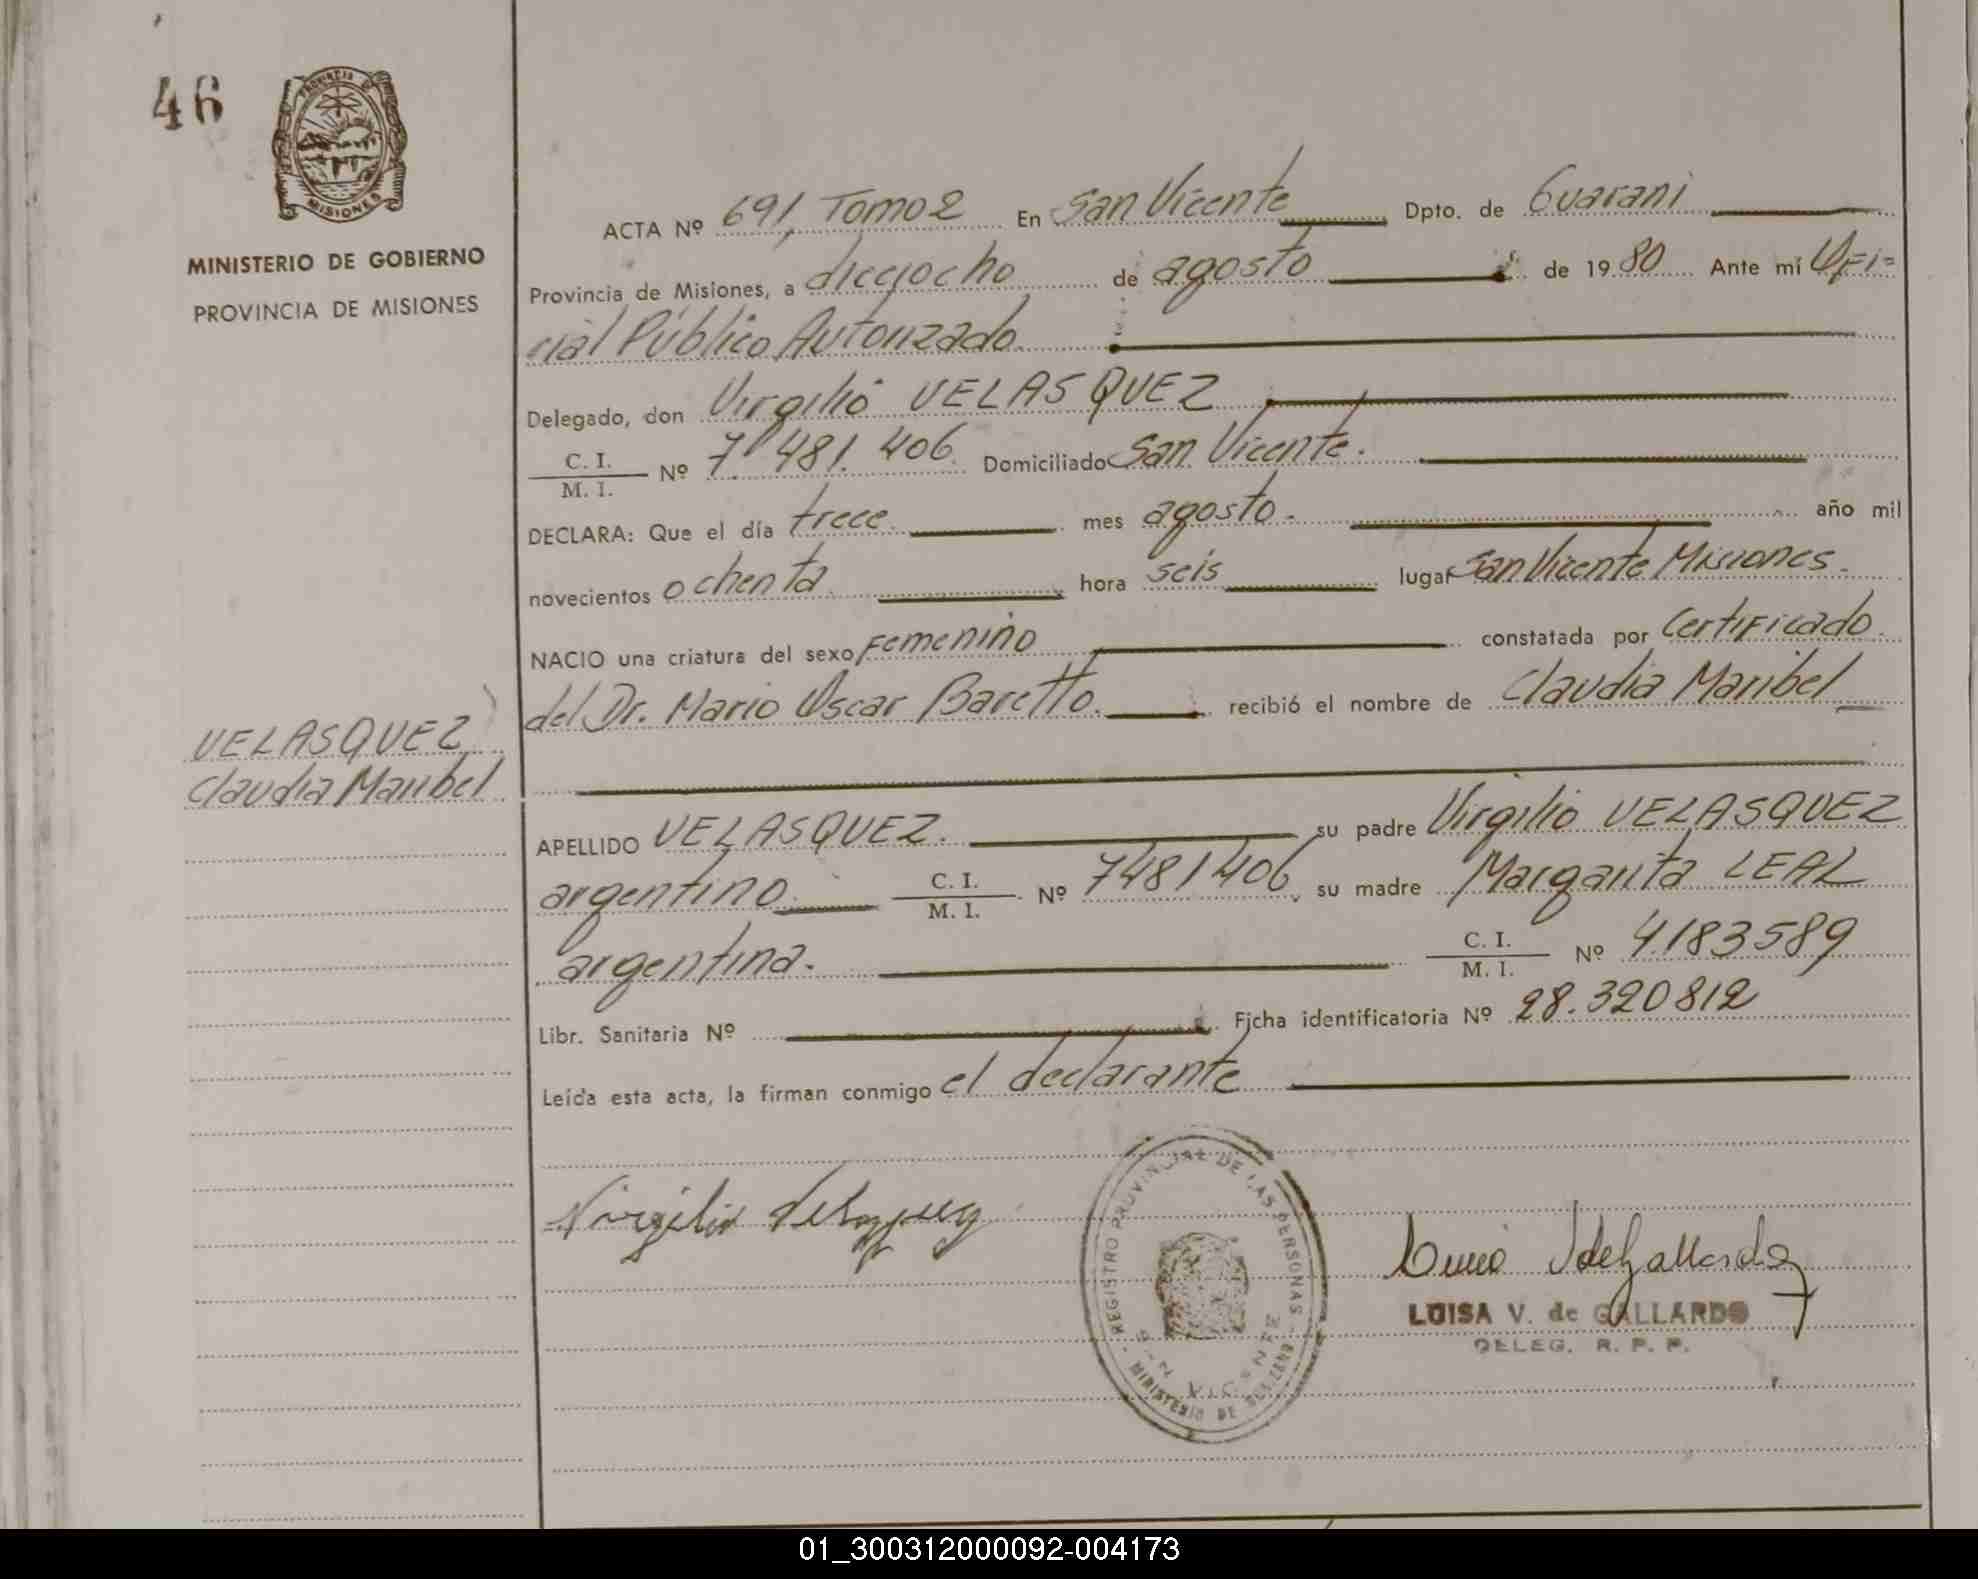 46
PROVINCIA DE
MISIONES
MINISTERIO DE GOBIERNO
PROVINCIA DE MISIONES
ACTA Nº 691, Tomo 2 En San Vicente Dpto. de Guarani
Provincia de Misiones, a dieciocho de agosto de 1980 Ante mí Ofi-
cial Público Autorizado.
Delegado, don Virgilio VELASQUEZ
C. I.
M. I. Nº 7.481.406. Domiciliado San Vicente.
DECLARA: Que el día trece mes agosto. año mil
novecientos ochenta hora seis lugar San Vicente Misiones.
NACIO una criatura del sexo Femenino constatada por Certificado
del Dr. Mario Oscar Baretto. recibió el nombre de Claudia Maribel
VELASQUEZ
Claudia Maribel
APELLIDO VELASQUEZ. su padre Virgilio VELASQUEZ
argentino C. I.
M. I. Nº 7481406, su madre Margarita LEAL
argentina. C. I.
M. I. Nº 4.183589
Libr. Sanitaria Nº Ficha identificatoria Nº 28.320812
Leída esta acta, la firman conmigo el declarante
REGISTRO PROVINCIAL DE LAS PERSONAS
MINISTERIO DE
Virgilio
LUISA V. de GALLARDO
DELEG. R. P. P.
01_300312000092-004173